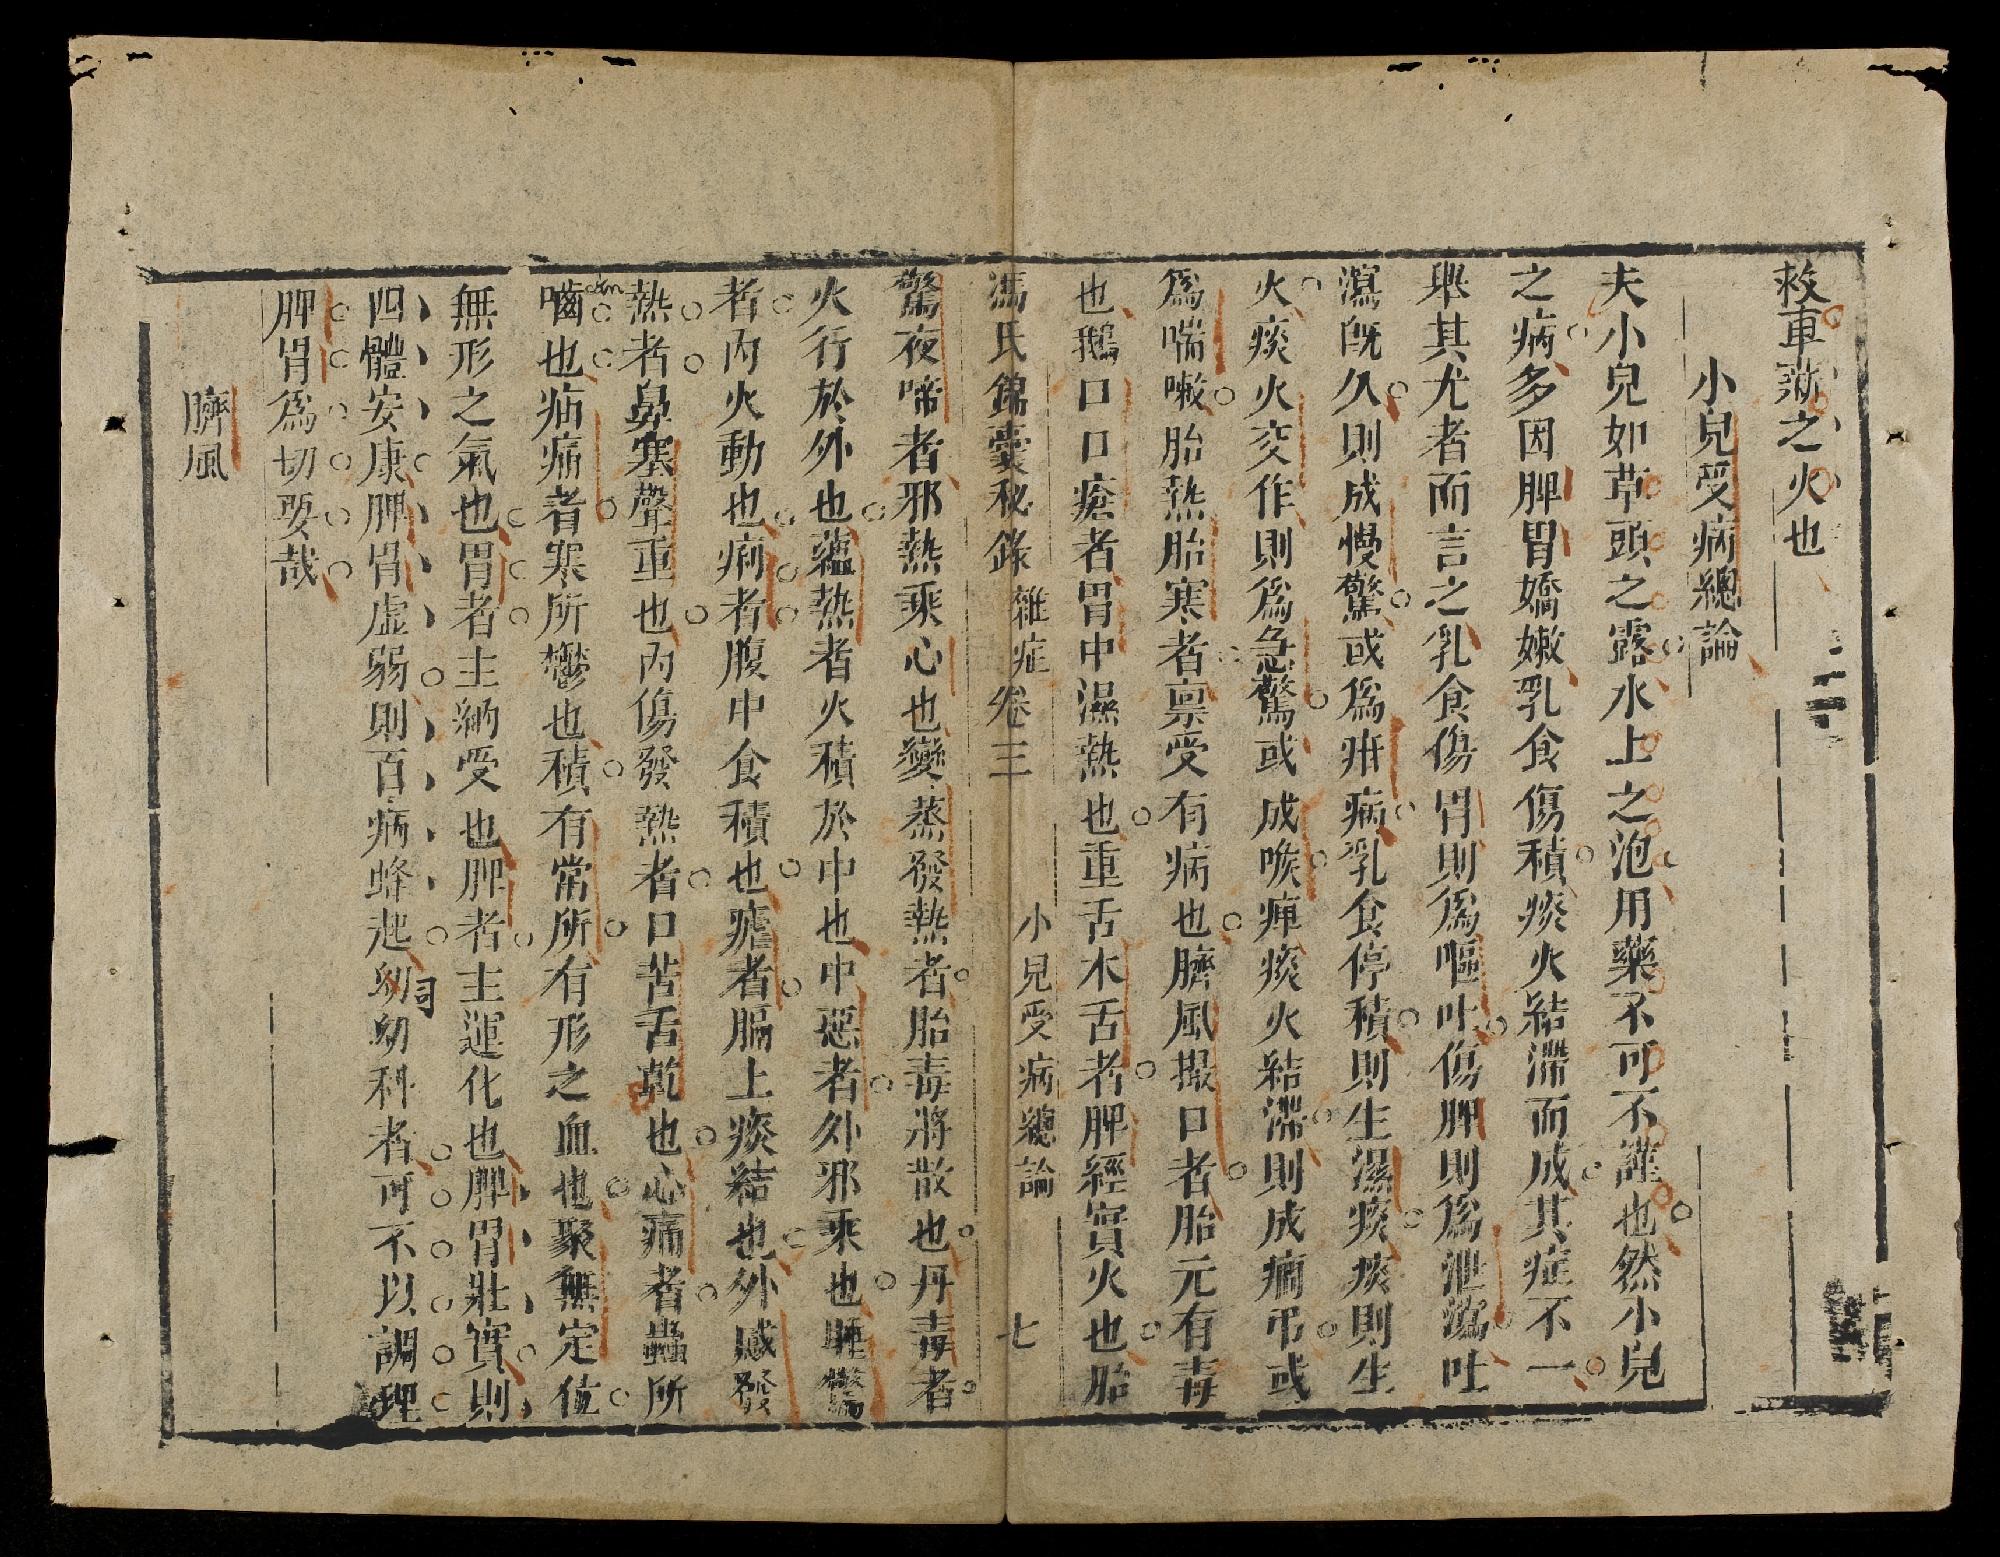 救車薪之火也
小兒受病總論
夫小兒如草頭之露水上之泡用藥不可不謹也然小兒
之病多因脾胃嬌嫩乳食傷積痰火結滯而成其症不一
舉其尤者而言之乳食傷胃則爲嘔吐傷脾則爲泄瀉吐
瀉旣久則成慢驚或爲疳病乳食停積則生濕痰痰則生
火痰火交作則爲急驚或成喉痺痰火結滯則成癇弔或
爲喘嗽胎熱胎寒者禀受有病也臍風撮口者胎元有毒
也鵝口口瘡者胃中濕熱也重舌木舌者脾經實火也胎
馮氏錦囊秘錄 雜症卷三 小兒受病總論 七
驚夜啼者邪熱乘心也變蒸發熱者胎毒將散也丹毒者
火行於外也蘊熱者火積於中也中惡者外邪乘也睡驚
者內火動也痢者腹中食積也瘧者膈上痰結也外感發
熱者鼻塞聲重也內傷發熱者口苦舌乾也心痛者蟲所
嚙也疝痛者寒所鬱也積有常所有形之血也聚無定位
無形之氣也胃者主納受也脾者主運化也脾胃壯實則
四體安康脾胃虛弱則百病蜂起幼幼科者可不以調理
司
脾胃爲切要哉
臍風